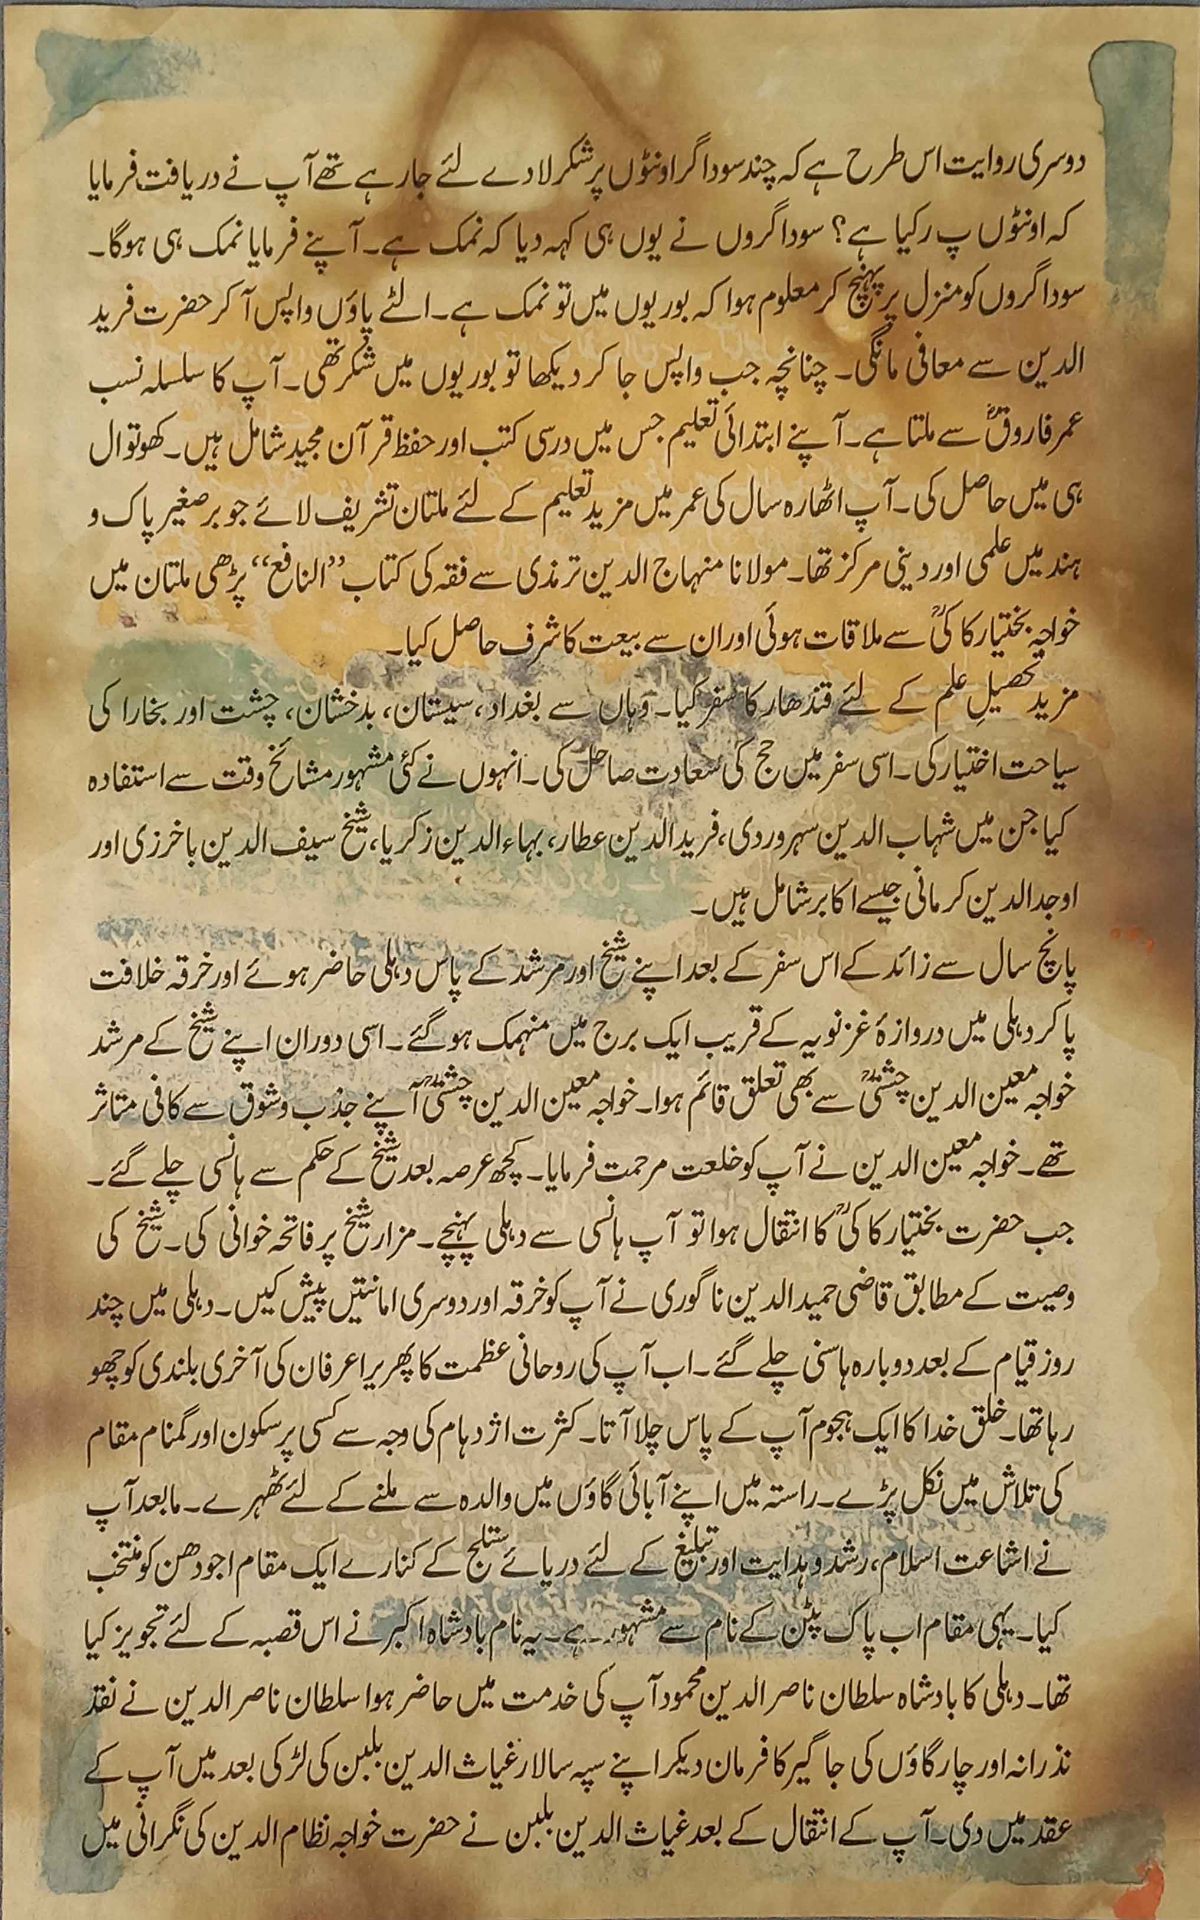 دوسری روایت اس طرح ہے کہ چند سوداگر اونٹوں پر شکر لادے لئے جارہے تھے آپ نے دریافت فرمایا
کہ اونٹوں پ رکیا ہے؟ سوداگروں نے یوں ہی کہہ دیا کہ نمک ہے۔ آپنے فرمایا نمک ہی ہوگا۔
سوداگروں کو منزل پر پہنچ کر معلوم ہوا کہ بوریوں میں تو نمک ہے۔ الٹے پاؤں واپس آ کر حضرت فرید
الدین سے معافی مانگی۔ چنانچہ جب واپس جا کر دیکھا تو بوریوں میں شکر تھی۔ آپ کا سلسلہ نسب
عمر فاروقؓ سے ملتا ہے۔ آپنے ابتدائی تعلیم جس میں درسی کتب اور حفظ قر آن مجید شامل ہیں۔ کھوتوال
ہی میں حاصل کی۔ آپ اٹھارہ سال کی عمر میں مزید تعلیم کے لئے ملتان تشریف لائے جو برصغیر پاک و
ہند میں علمی اور دینی مرکز تھا۔ مولانا منہاج الدین ترمذی سے فقہ کی کتاب ”النافع“ پڑھی ملتان میں
خواجہ بختیار کاکیؒ سے ملاقات ہوئی اور ان سے بیعت کا شرف حاصل کیا۔
مزید تحصیلِ علم کے لئے قندھار کا سفر کیا۔ وہاں سے بغداد، سیستان، بدخشان، چشت اور بخارا کی
سیاحت اختیار کی۔ اسی سفر میں حج کی سعادت صاحل کی۔ انہوں نے کئی مشہور مشائخ وقت سے استفادہ
کیا جن میں شہاب الدین سہروردی، فرید الدین عطار، بہاء الدین زکریا، شیخ سیف الدین باخرزی اور
اوجد الدین کرمانی جیسے اکابر شامل ہیں۔
پانچ سال سے زائد کے اس سفر کے بعد اپنے شیخ اور مرشد کے پاس دہلی حاضر ہوئے اور خرقہ خلافت
پا کر دہلی میں دروازۂ غزنویہ کے قریب ایک برج میں منہمک ہو گئے۔ اسی دوران اپنے شیخ کے مرشد
خواجہ معین الدین چشتیؒ سے بھی تعلق قائم ہوا۔ خواجہ معین الدین چشتیؒ آپنے جذب و شوق سے کافی متاثر
تھے۔ خواجہ معین الدین نے آپ کو خلعت مرحمت فرمایا۔ کچھ عرصہ بعد شیخ کے حکم سے ہانسی چلے گئے۔
جب حضرت بختیار کاکیؒ کا انتقال ہوا تو آپ ہانسی سے دہلی پہنچے۔ مزار شیخ پر فاتحہ خوانی کی۔ شیخ کی
وصیت کے مطابق قاضی حمید الدین ناگوری نے آپ کو خرقہ اور دوسری امانتیں پیش کیں۔ دہلی میں چند
روز قیام کے بعد دوبارہ ہاسنی چلے گئے۔ اب آپ کی روحانی عظمت کا پھریرا عرفان کی آخری بلندی کو چھو
رہا تھا۔ خلق خدا کا ایک ہجوم آپ کے پاس چلا آتا۔ کثرت اژدہام کی وجہ سے کسی پر سکون اور گمنام مقام
کی تلاش میں نکل پڑے۔ راستہ میں اپنے آبائی گاؤں میں والدہ سے ملنے کے لئے ٹھہرے۔ مابعد آپ
نے اشاعت اسلام، رشد و ہدایت اور تبلیغ کے لئے دریائے ستلج کے کنارے ایک مقام اجودھن کو منتخب
کیا۔ یہی مقام اب پاک پٹن کے نام سے مشہور ہے۔ یہ نام بادشاہ اکبر نے اس قصبہ کے لئے تجویز کیا
تھا۔ دہلی کا بادشاہ سلطان ناصر الدین محمود آپ کی خدمت میں حاضر ہوا سلطان ناصر الدین نے نقد
نذرانہ اور چار گاؤں کی جاگیر کا فرمان دیکر اپنے سپہ سالار غیاث الدین بلبن کی لڑکی بعد میں آپ کے
عقد میں دی۔ آپ کے انتقال کے بعد غیاث الدین بلبن نے حضرت خواجہ نظام الدین کی نگرانی میں